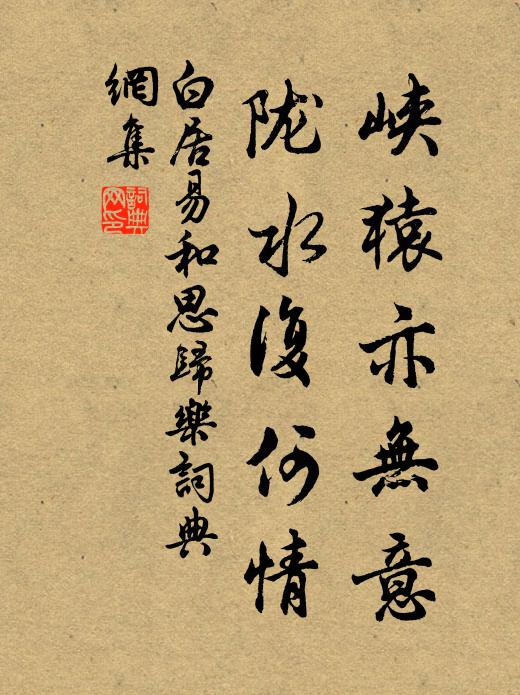 峡猿亦無意
陇水復何情
白居易和思歸樂詞典
網集
詞典
网印